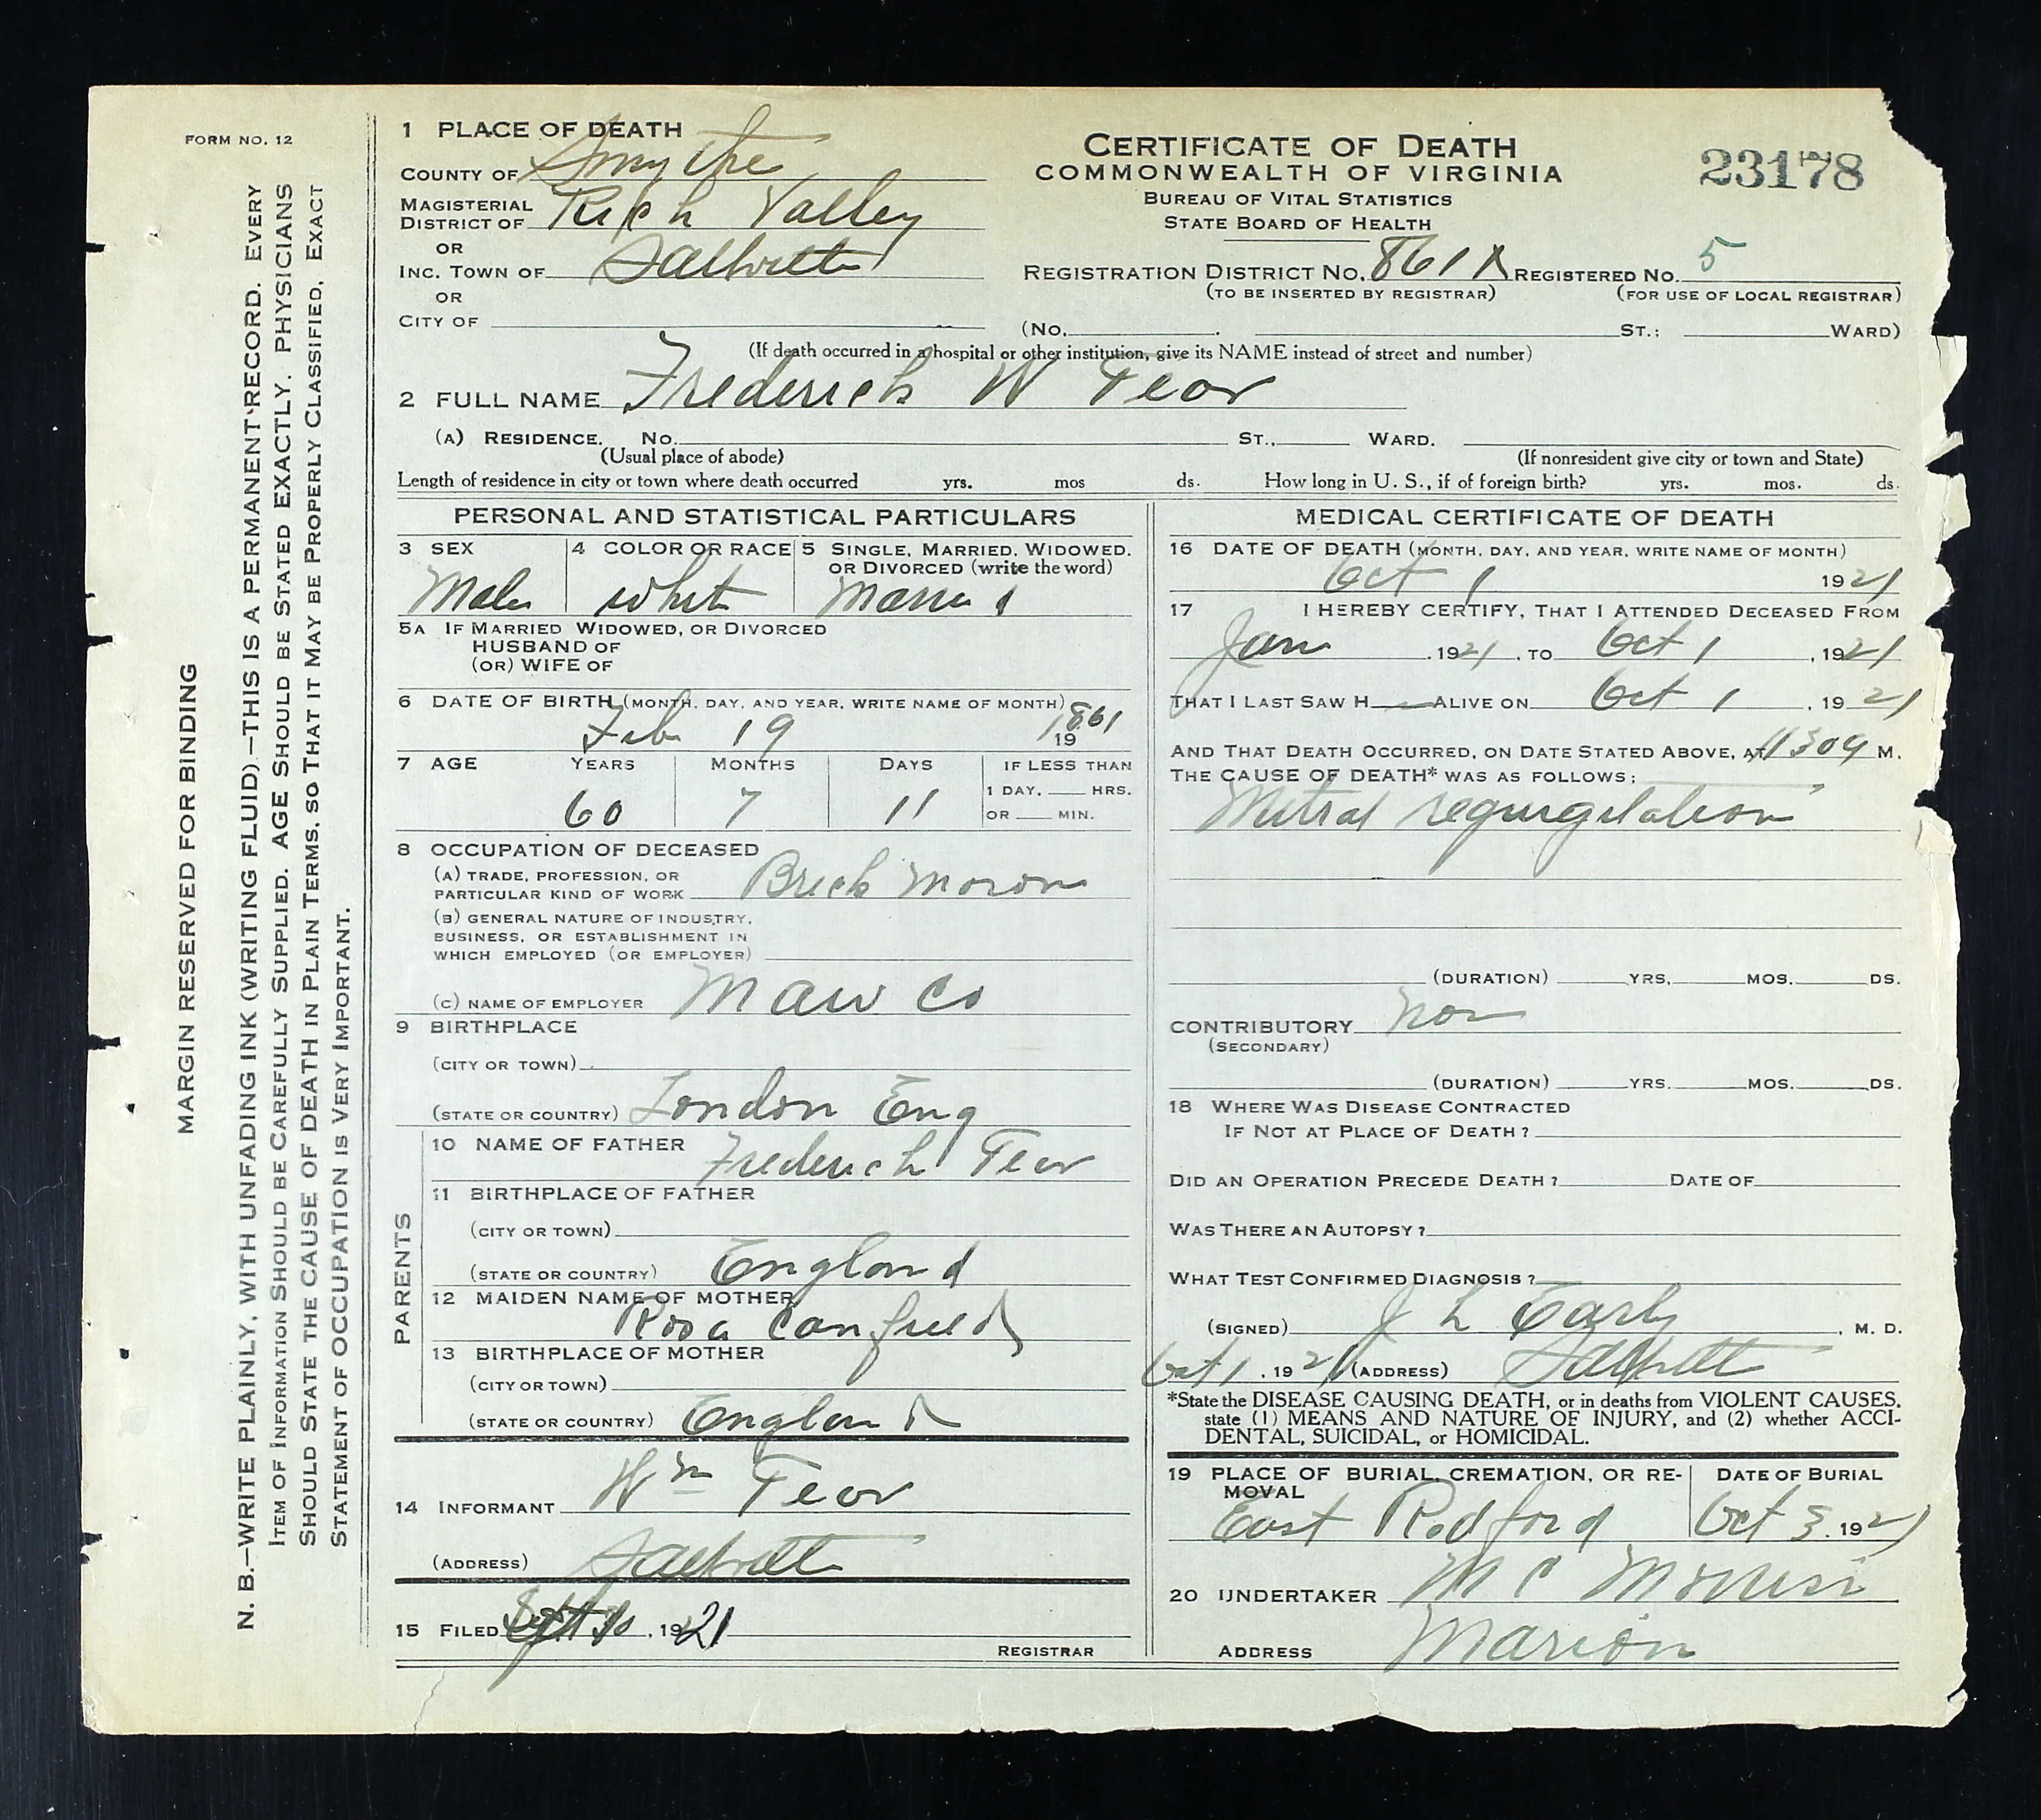 FORM NO. 12
MARGIN RESERVED FOR BINDING
N. B.—WRITE PLAINLY, WITH UNFADING INK (WRITING FLUID).—THIS IS A PERMANENT RECORD. EVERY
ITEM OF INFORMATION SHOULD BE CAREFULLY SUPPLIED. AGE SHOULD BE STATED EXACTLY. PHYSICIANS
SHOULD STATE THE CAUSE OF DEATH IN PLAIN TERMS, SO THAT IT MAY BE PROPERLY CLASSIFIED, EXACT
STATEMENT OF OCCUPATION IS VERY IMPORTANT.
1 PLACE OF DEATH
COUNTY OF Smythe
MAGISTERIAL DISTRICT OF Rich Valley
OR
INC. TOWN OF Saltville
OR
CITY OF
CERTIFICATE OF DEATH
COMMONWEALTH OF VIRGINIA
BUREAU OF VITAL STATISTICS
STATE BOARD OF HEALTH
23178
REGISTRATION DISTRICT NO. 861A REGISTERED NO. 5
(TO BE INSERTED BY REGISTRAR) (FOR USE OF LOCAL REGISTRAR)
(No. ST.; WARD)
(If death occurred in a hospital or other institution, give its NAME instead of street and number)
2 FULL NAME Frederick W Tear
(A) RESIDENCE. No. ST., WARD.
(Usual place of abode) (If nonresident give city or town and State)
Length of residence in city or town where death occurred yrs. mos ds. How long in U. S., if of foreign birth? yrs. mos. ds.
PERSONAL AND STATISTICAL PARTICULARS
3 SEX 4 COLOR OR RACE 5 SINGLE, MARRIED, WIDOWED, OR DIVORCED (write the word)
Male white Married
5A IF MARRIED WIDOWED, OR DIVORCED
HUSBAND OF
(OR) WIFE OF
6 DATE OF BIRTH (MONTH, DAY, AND YEAR, WRITE NAME OF MONTH)
Feb 19 1861
19
7 AGE YEARS MONTHS DAYS IF LESS THAN
1 DAY, HRS.
60 7 11 OR MIN.
8 OCCUPATION OF DECEASED
(A) TRADE, PROFESSION, OR
PARTICULAR KIND OF WORK Brick Mason
(B) GENERAL NATURE OF INDUSTRY,
BUSINESS, OR ESTABLISHMENT IN
WHICH EMPLOYED (OR EMPLOYER)
(C) NAME OF EMPLOYER M A W Co
9 BIRTHPLACE
(CITY OR TOWN)
(STATE OR COUNTRY) London Eng
PARENTS
10 NAME OF FATHER Frederick Tear
11 BIRTHPLACE OF FATHER
(CITY OR TOWN)
(STATE OR COUNTRY) England
12 MAIDEN NAME OF MOTHER
Rosa Canfield
13 BIRTHPLACE OF MOTHER
(CITY OR TOWN)
(STATE OR COUNTRY) England
14 INFORMANT Wm Tear
(ADDRESS) Saltville
15 FILED 1921
REGISTRAR
MEDICAL CERTIFICATE OF DEATH
16 DATE OF DEATH (MONTH, DAY, AND YEAR, WRITE NAME OF MONTH)
Oct 1 1921
17 I HEREBY CERTIFY, THAT I ATTENDED DECEASED FROM
Jan , 1921, TO Oct 1 , 1921
THAT I LAST SAW H ALIVE ON Oct 1 , 1921
AND THAT DEATH OCCURRED, ON DATE STATED ABOVE, AT 1130a M.
THE CAUSE OF DEATH* WAS AS FOLLOWS:
Mitral regurgitation
(DURATION) YRS, MOS. DS.
CONTRIBUTORY non
(SECONDARY)
(DURATION) YRS. MOS. DS.
18 WHERE WAS DISEASE CONTRACTED
IF NOT AT PLACE OF DEATH?
DID AN OPERATION PRECEDE DEATH? DATE OF
WAS THERE AN AUTOPSY?
WHAT TEST CONFIRMED DIAGNOSIS?
(SIGNED) J L Early, M. D.
Oct 1, 1921 (ADDRESS) Saltville
*State the DISEASE CAUSING DEATH, or in deaths from VIOLENT CAUSES,
state (1) MEANS AND NATURE OF INJURY, and (2) whether ACCI-
DENTAL, SUICIDAL, or HOMICIDAL.
19 PLACE OF BURIAL, CREMATION, OR RE-
MOVAL DATE OF BURIAL
East Radford Oct 3, 1921
20 UNDERTAKER M C
ADDRESS Marion